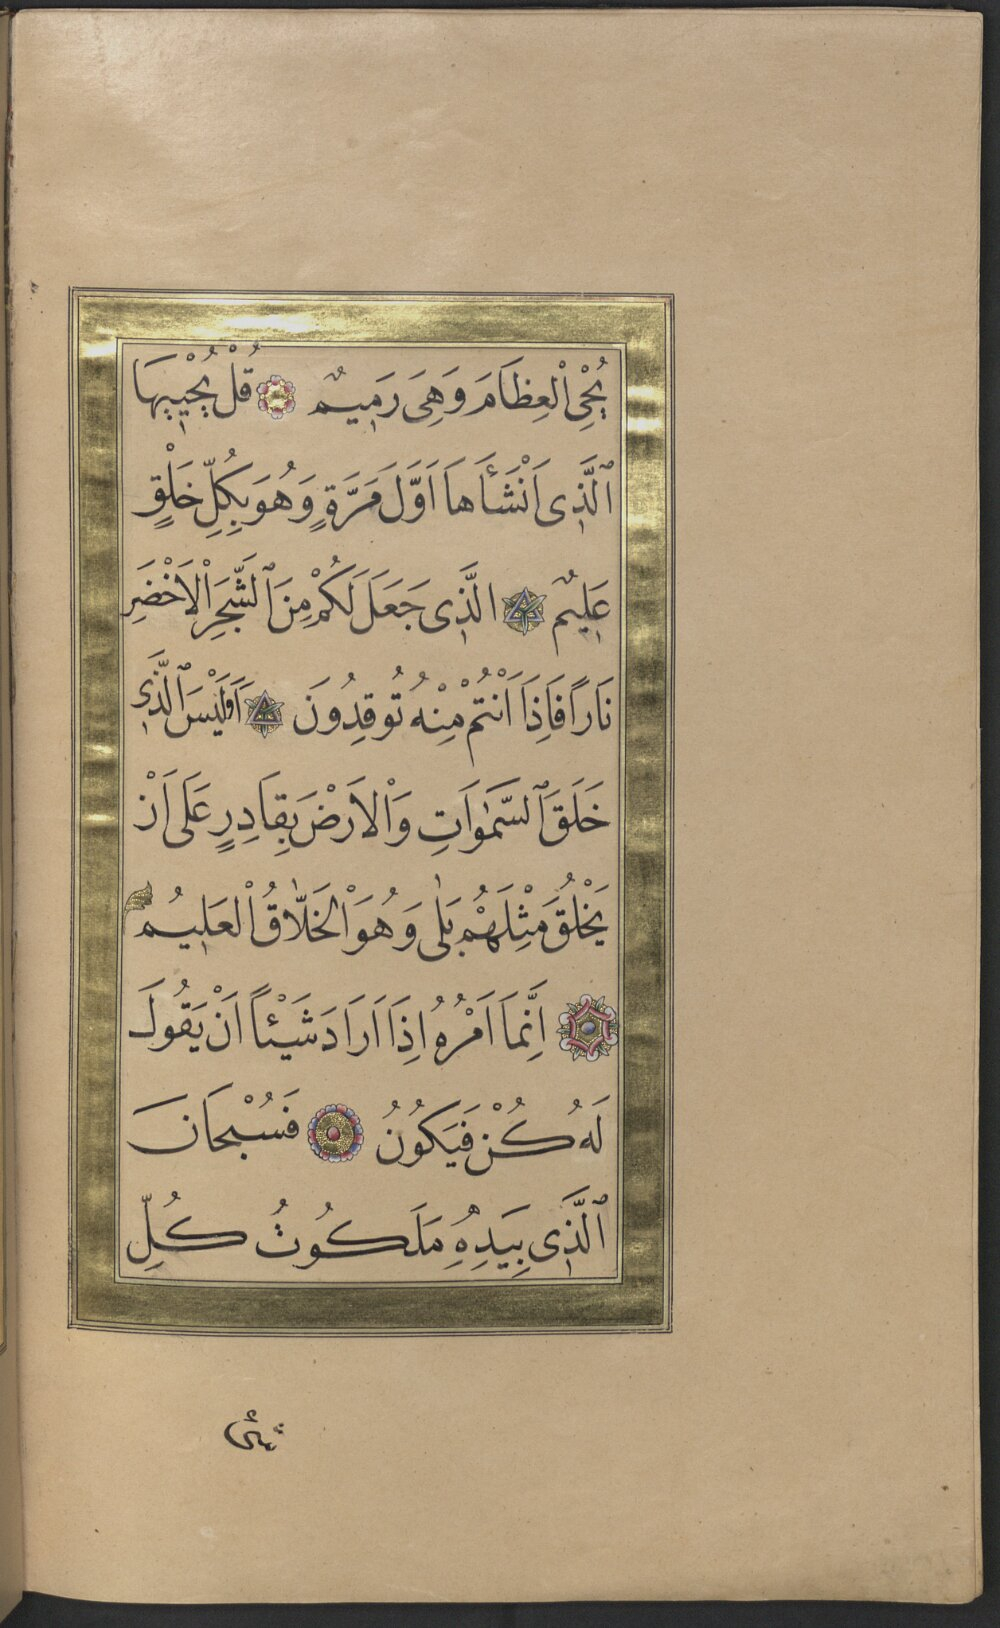 يُحْيِ الْعِظَامَ وَهِىَ رَمِيمٌ قُلْ يُحْيِيهَا
ٱلَّذِى اَنْشَأَهَا اَوَّلَ مَرَّةٍ وَهُوَ بِكُلِّ خَلْقٍ
عَلِيمٌ الَّذِى جَعَلَ لَكُمْ مِنَ ٱلشَّجَرِ الْاَخْضَرِ
نَارًا فَاِذَا اَنْتُمْ مِنْهُ تُوقِدُونَ اَوَلَيْسَ ٱلَّذِى
خَلَقَ ٱلسَّمٰوَاتِ وَالْاَرْضَ بِقَادِرٍ عَلَى اَنْ
يَخْلُقَ مِثْلَهُمْ بَلٰى وَهُوَ الْخَلَّاقُ الْعَلِيمُ
اِنَّمَا اَمْرُهُ اِذَا اَرَادَ شَيْئًا اَنْ يَقُولَ
لَهُ كُنْ فَيَكُونُ فَسُبْحَانَ
ٱلَّذِى بِيَدِهِ مَلَكُوتُ كُلِّ
شئ